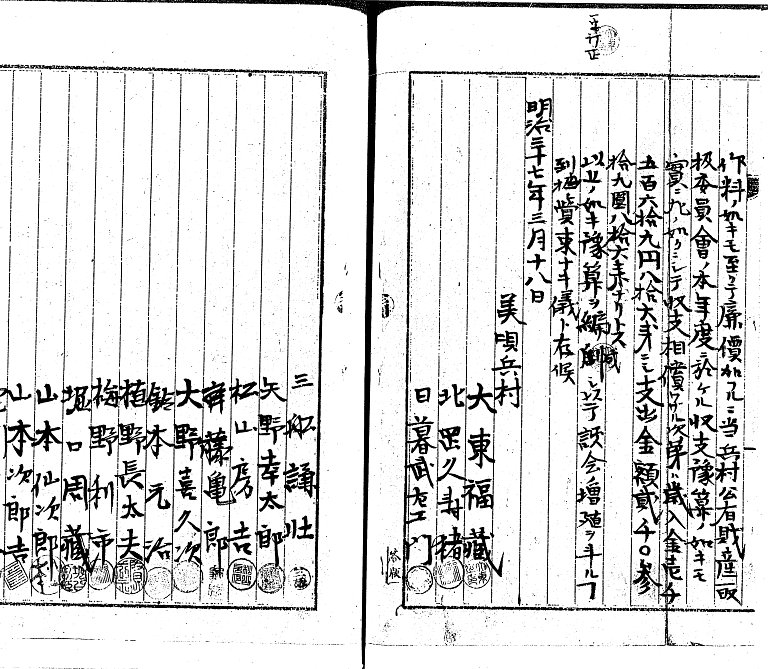 作料ノ如キモ至ッテ廉價加フルニ当兵村公有財産取
扱委員會ノ本年度ニ於ケル収支豫算ノ如キモ
實ニ九ノ如クニシテ収支相償フ次第歳入金壱千
五百六拾九円八拾六銭ニシ支出金額貳千〇参
拾九圓八拾六銭ナリトス
以上ノ如キ豫算ヲ編制シ以テ該会増殖ヲキルフ
到底覚束ナキ儀ト存候
明治三十七年三月十八日
美唄兵村
大東福藏
北岡久壽猪
日暮武左エ門
三舩誦壯
矢野幸太郎
松山房吉
齊藤亀郎
大野喜久次
鈴木元治
植野長太夫
梅野利市
堀口周藏
山本仙次郎
山本次郎吉